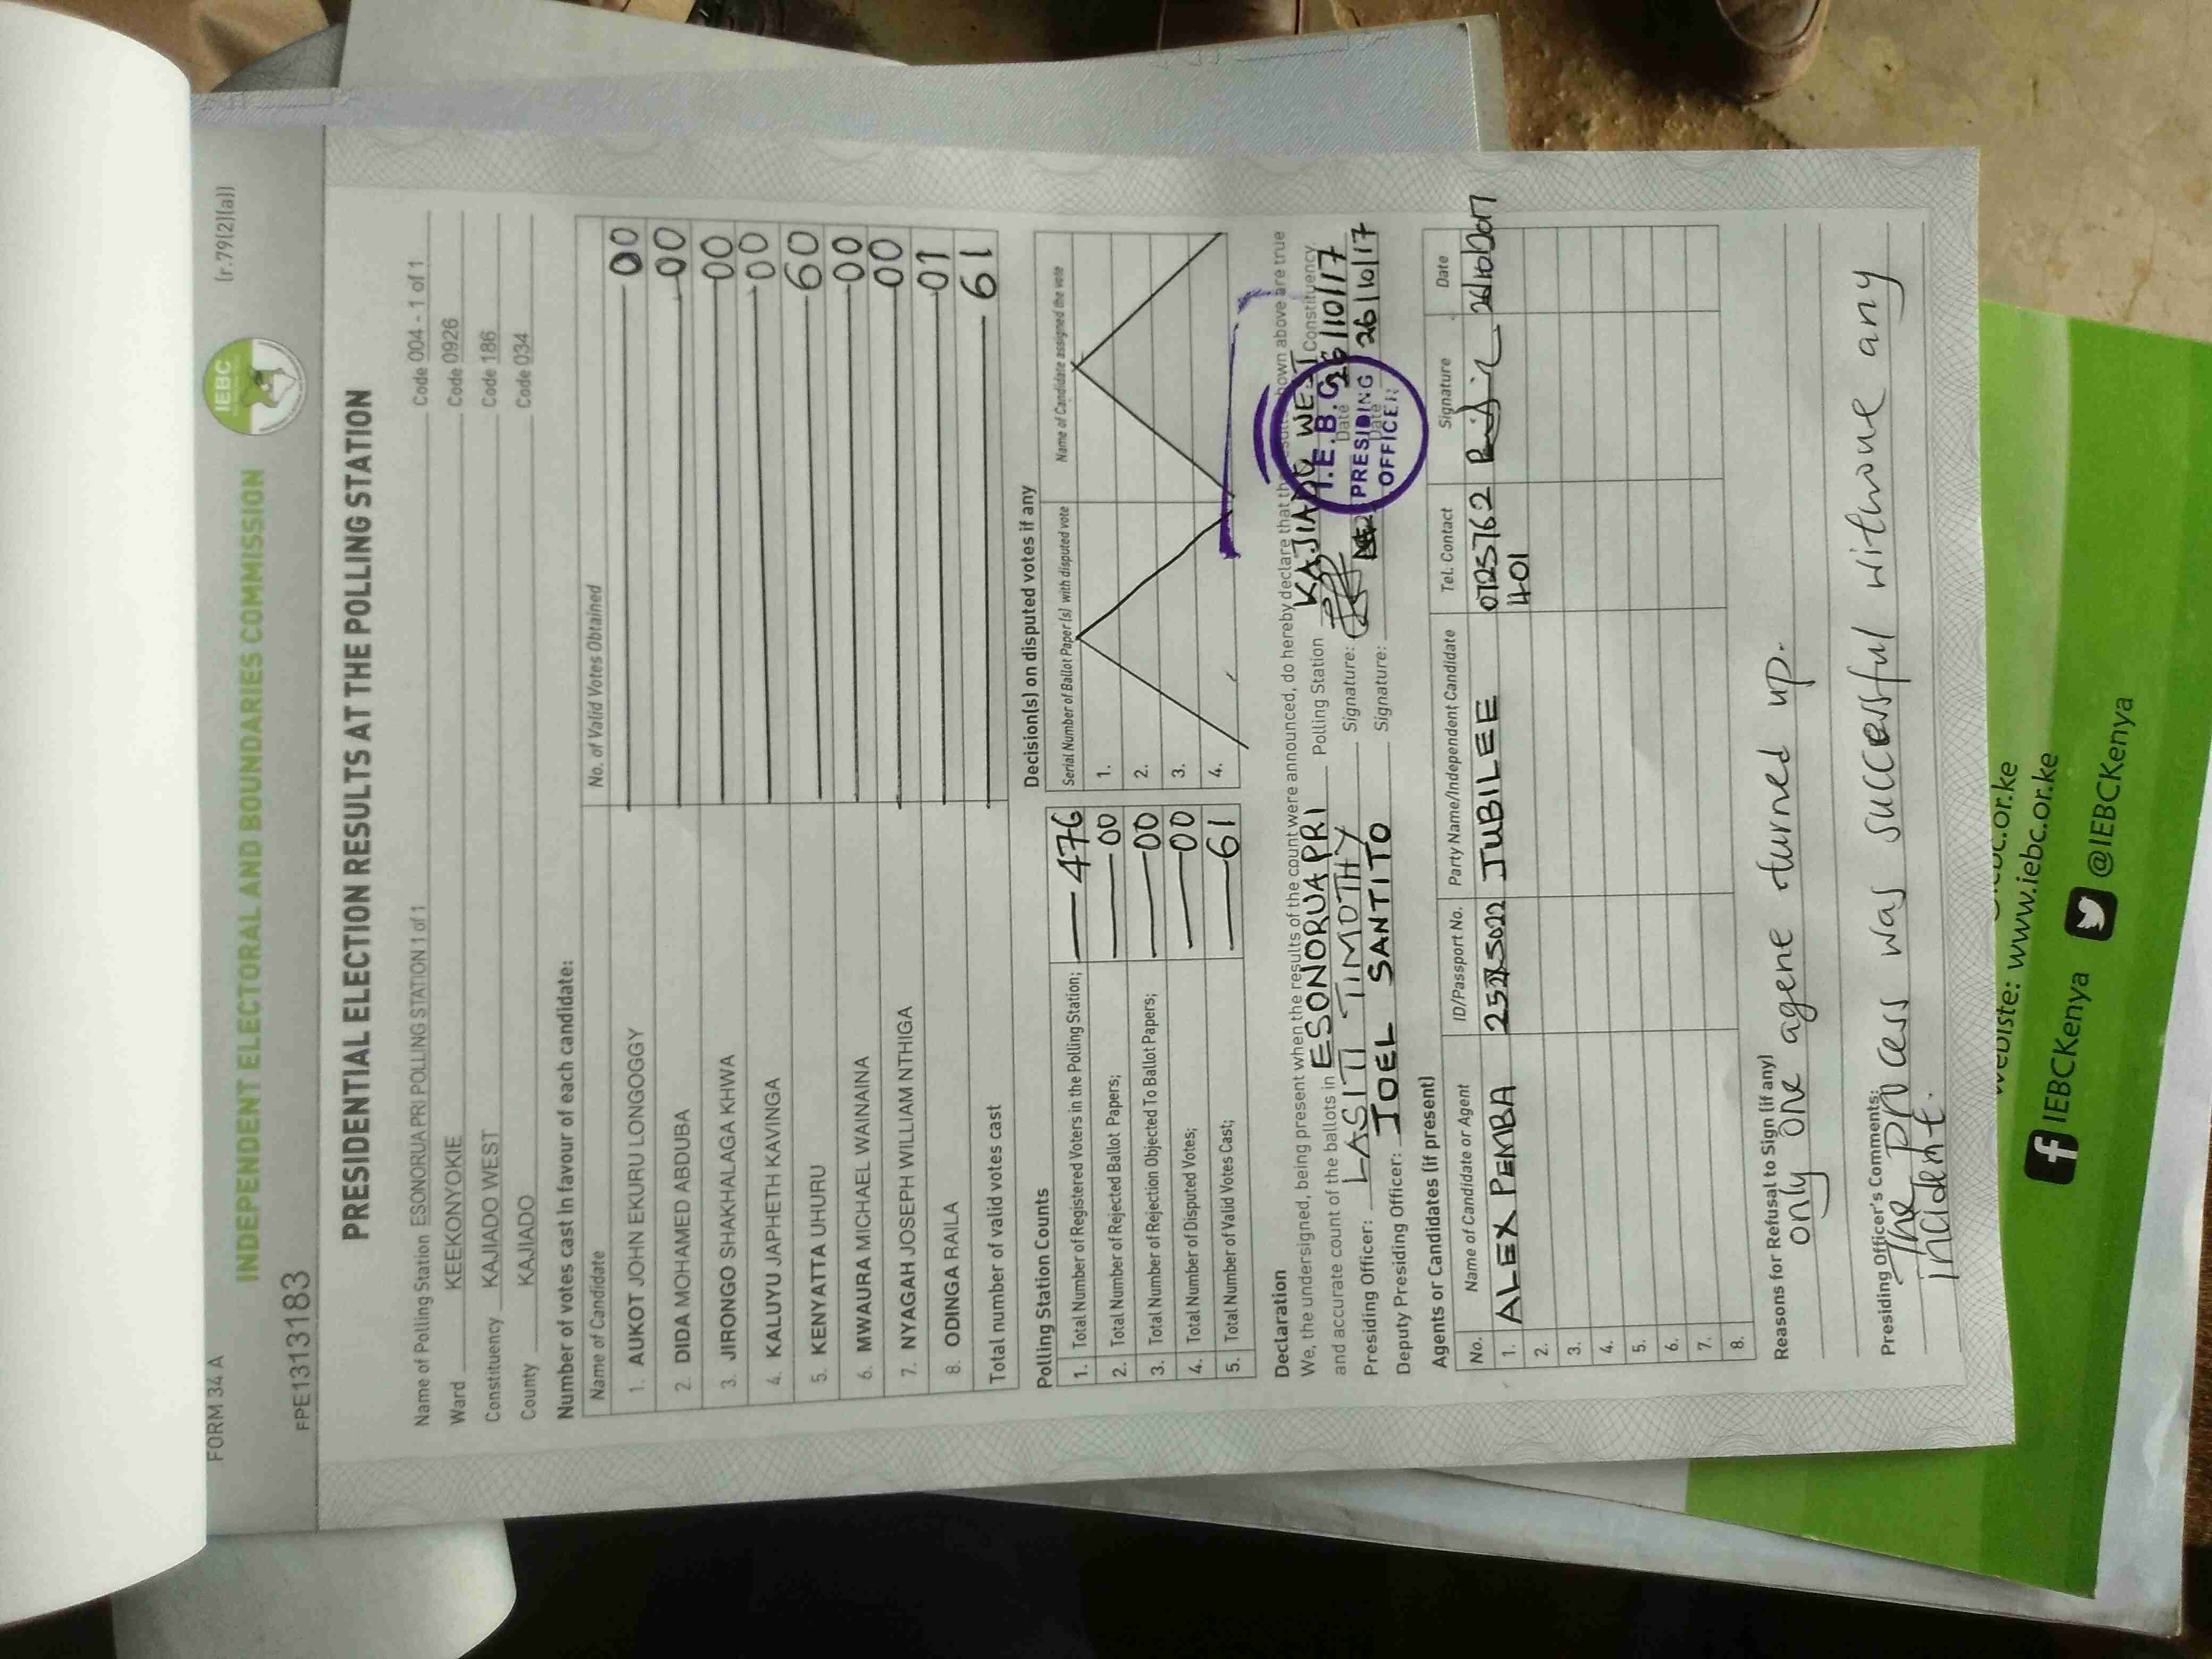 FORM 34 A
(r.79(2)(a))
INDEPENDENT ELECTORAL AND BOUNDARIES COMMISSION
IEBC
FPE1313183
PRESIDENTIAL ELECTION RESULTS AT THE POLLING STATION
Name of Polling Station ESONORUA PRI POLLING STATION 1 of 1 Code 004 - 1 of 1
Ward KEEKONYOKIE Code 0926
Constituency KAJIADO WEST Code 186
County KAJIADO Code 034
Number of votes cast in favour of each candidate:
Name of Candidate No. of Valid Votes Obtained
1. AUKOT JOHN EKURU LONGOGGY 00
2. DIDA MOHAMED ABDUBA 00
3. JIRONGO SHAKHALAGA KHWA 00
4. KALUYU JAPHETH KAVINGA 00
5. KENYATTA UHURU 60
6. MWAURA MICHAEL WAINAINA 00
7. NYAGAH JOSEPH WILLIAM NTHIGA 00
8. ODINGA RAILA 01
Total number of valid votes cast 61
Polling Station Counts
1. Total Number of Registered Voters in the Polling Station; 476
2. Total Number of Rejected Ballot Papers; 00
3. Total Number of Rejection Objected To Ballot Papers; 00
4. Total Number of Disputed Votes; 00
5. Total Number of Valid Votes Cast; 61
Decision(s) on disputed votes if any
Serial Number of Ballot Paper(s) with disputed vote Name of Candidate assigned the vote
1.
2.
3.
4.
Declaration
We, the undersigned, being present when the results of the count were announced, do hereby declare that the shown above are true
and accurate count of the ballots in ESONORUA PRI Polling Station KAJIADO WEST Constituency
Presiding Officer: LASITI TIMOTHY Signature: Date 26/10/17
Deputy Presiding Officer: JOEL SANTITO Signature: Date 26/10/17
I.E.B.C
PRESIDING
OFFICER
Agents or Candidates (if present)
No. Name of Candidate or Agent ID/Passport No. Party Name/Independent Candidate Tel. Contact Signature Date
1. ALEX PEMBA JUBILEE 0725762 26/10/2017
401
2.
3.
4.
5.
6.
7.
8.
Reasons for Refusal to Sign (if any)
only one agene turned up.
Presiding Officer's Comments:
The process was successful withoue any
incident.
website: www.iebc.or.ke
IEBCKenya @IEBCKenya